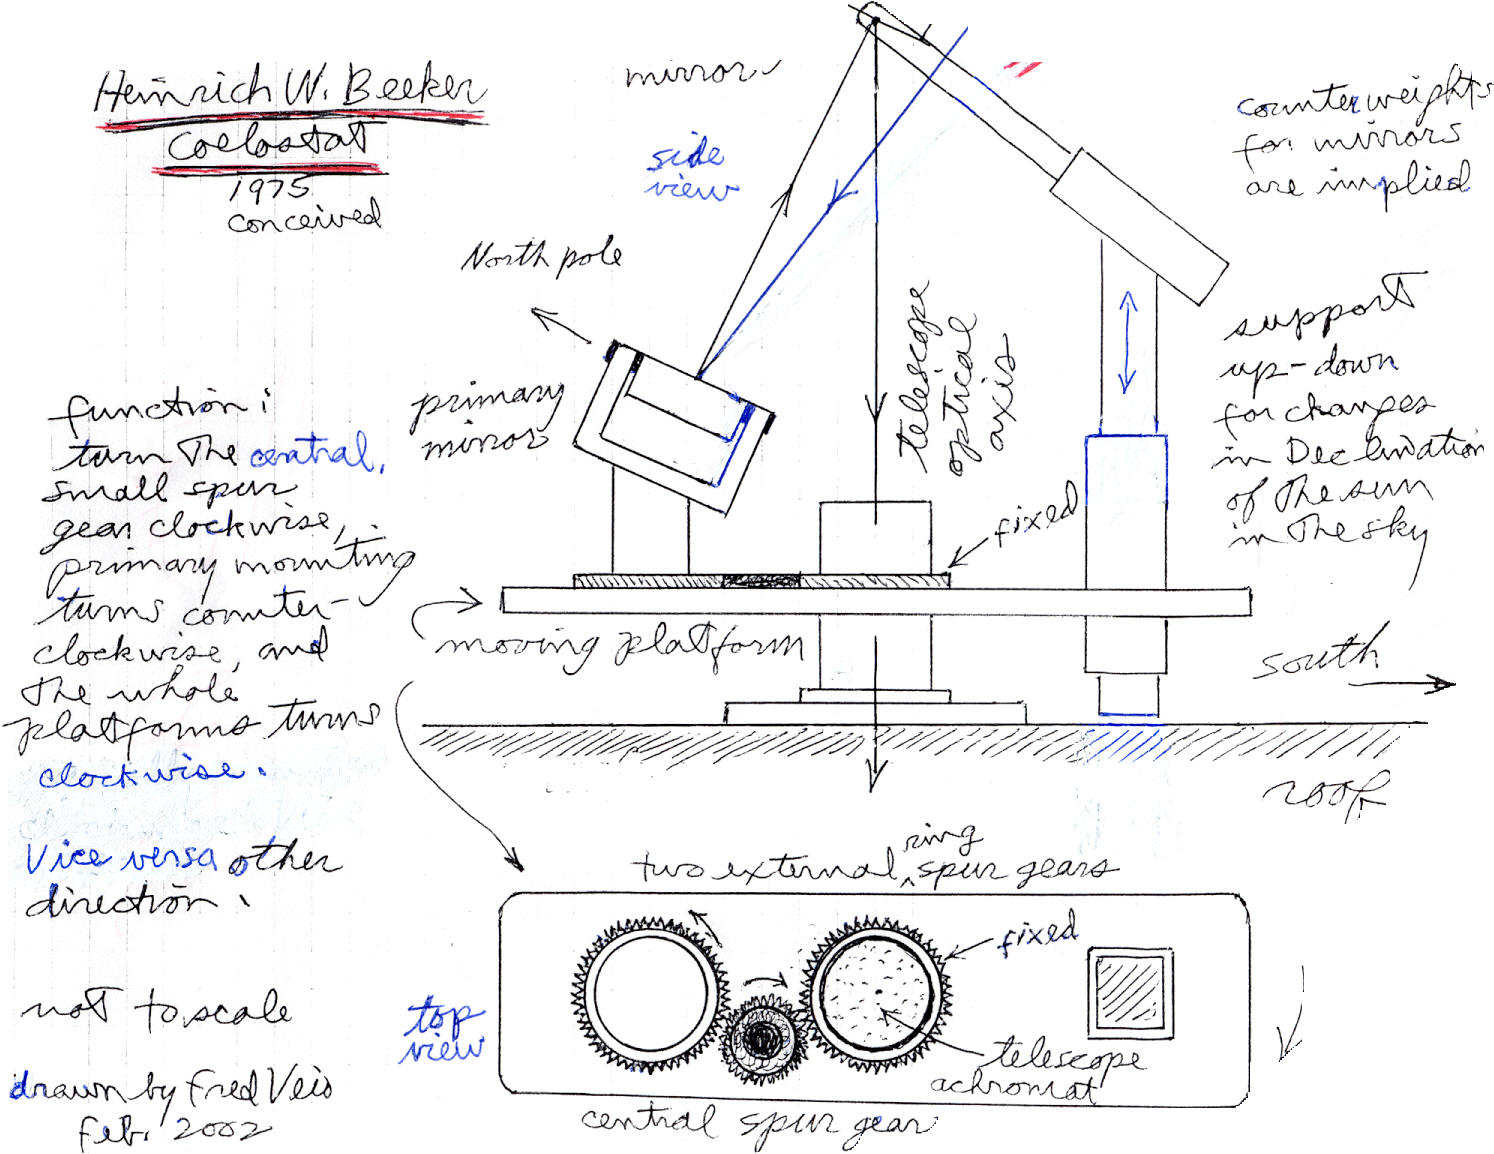 Heinrich W. Beeker
Coelostat
1975
conceived
mirror
side
view
counterweights
for mirrors
are implied
North pole
primary
mirror
telescope
optical
axis
fixed
support
up-down
for changes
in Declination
of the sun
in the sky
function:
turn the central,
small spur
gear clockwise,
primary mounting
turns counter-
clockwise, and
the whole
platforms turns
clockwise.
Vice versa other
direction.
moving platform
south
roof
two external ring spur gears
fixed
top
view
telescope
achromat
central spur gear
not to scale
drawn by Fred Veio
Feb. 2002